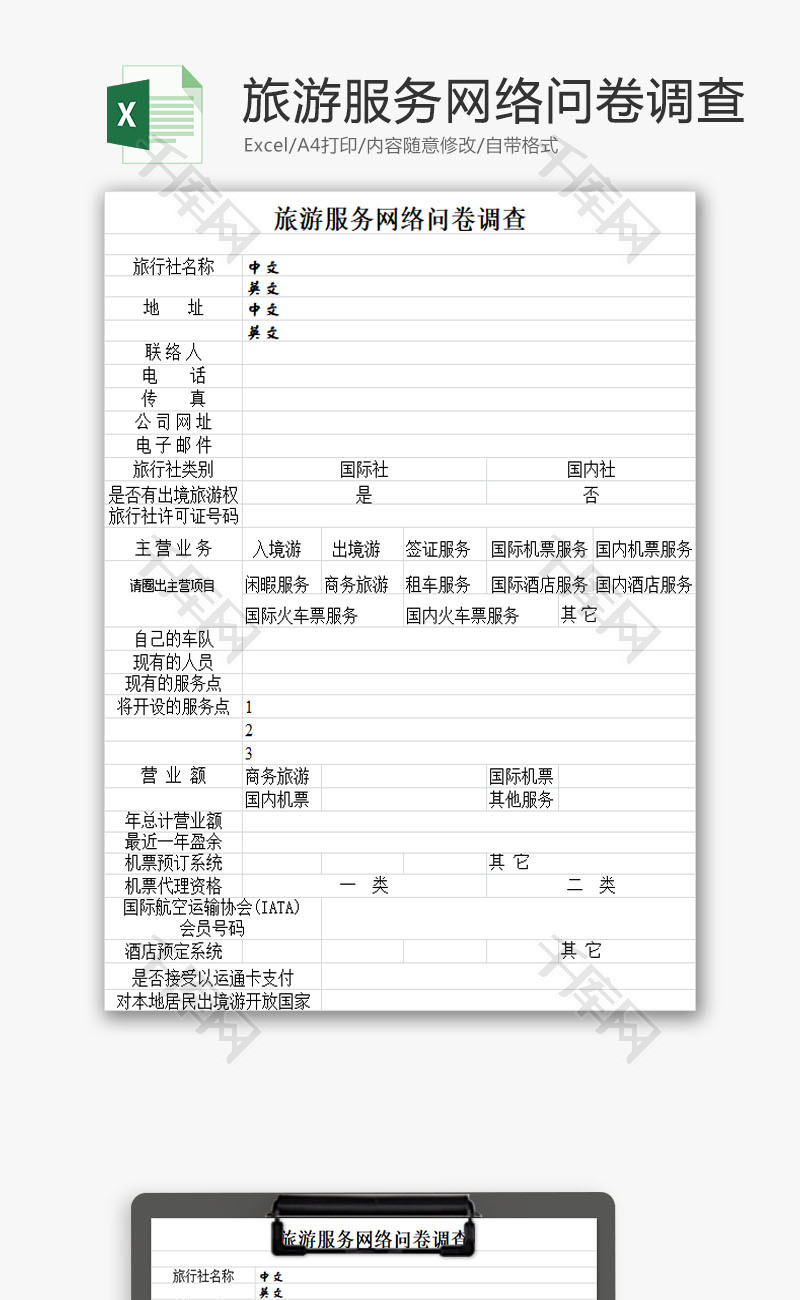 旅游服务网络问卷调查
X
Excel/A4打印/内容随意修改/自带格式
千库网 千库网
旅游服务网络问卷调查
旅行社名称 中文
英文
地 址 中文
英文
联络人
电 话
传 真
公司网址
电子邮件
旅行社类别 国际社 国内社
是否有出境旅游权 是 否
旅行社许可证号码
主营业务 入境游 出境游 签证服务 国际机票服务 国内机票服务
请圈出主营项目 闲暇服务 商务旅游 租车服务 国际酒店服务 国内酒店服务
千库网 千库网
国际火车票服务 国内火车票服务 其它
自己的车队
现有的人员
现有的服务点
将开设的服务点 1
2
3
营业额 商务旅游 国际机票
国内机票 其他服务
年总计营业额
最近一年盈余
机票预订系统 其它
机票代理资格 一 类 二 类
国际航空运输协会(IATA)
会员号码
酒店预定系统 其它
是否接受以运通卡支付
对本地居民出境游开放国家
千库网 千库网
旅游服务网络问卷调查
旅行社名称 中文
英文